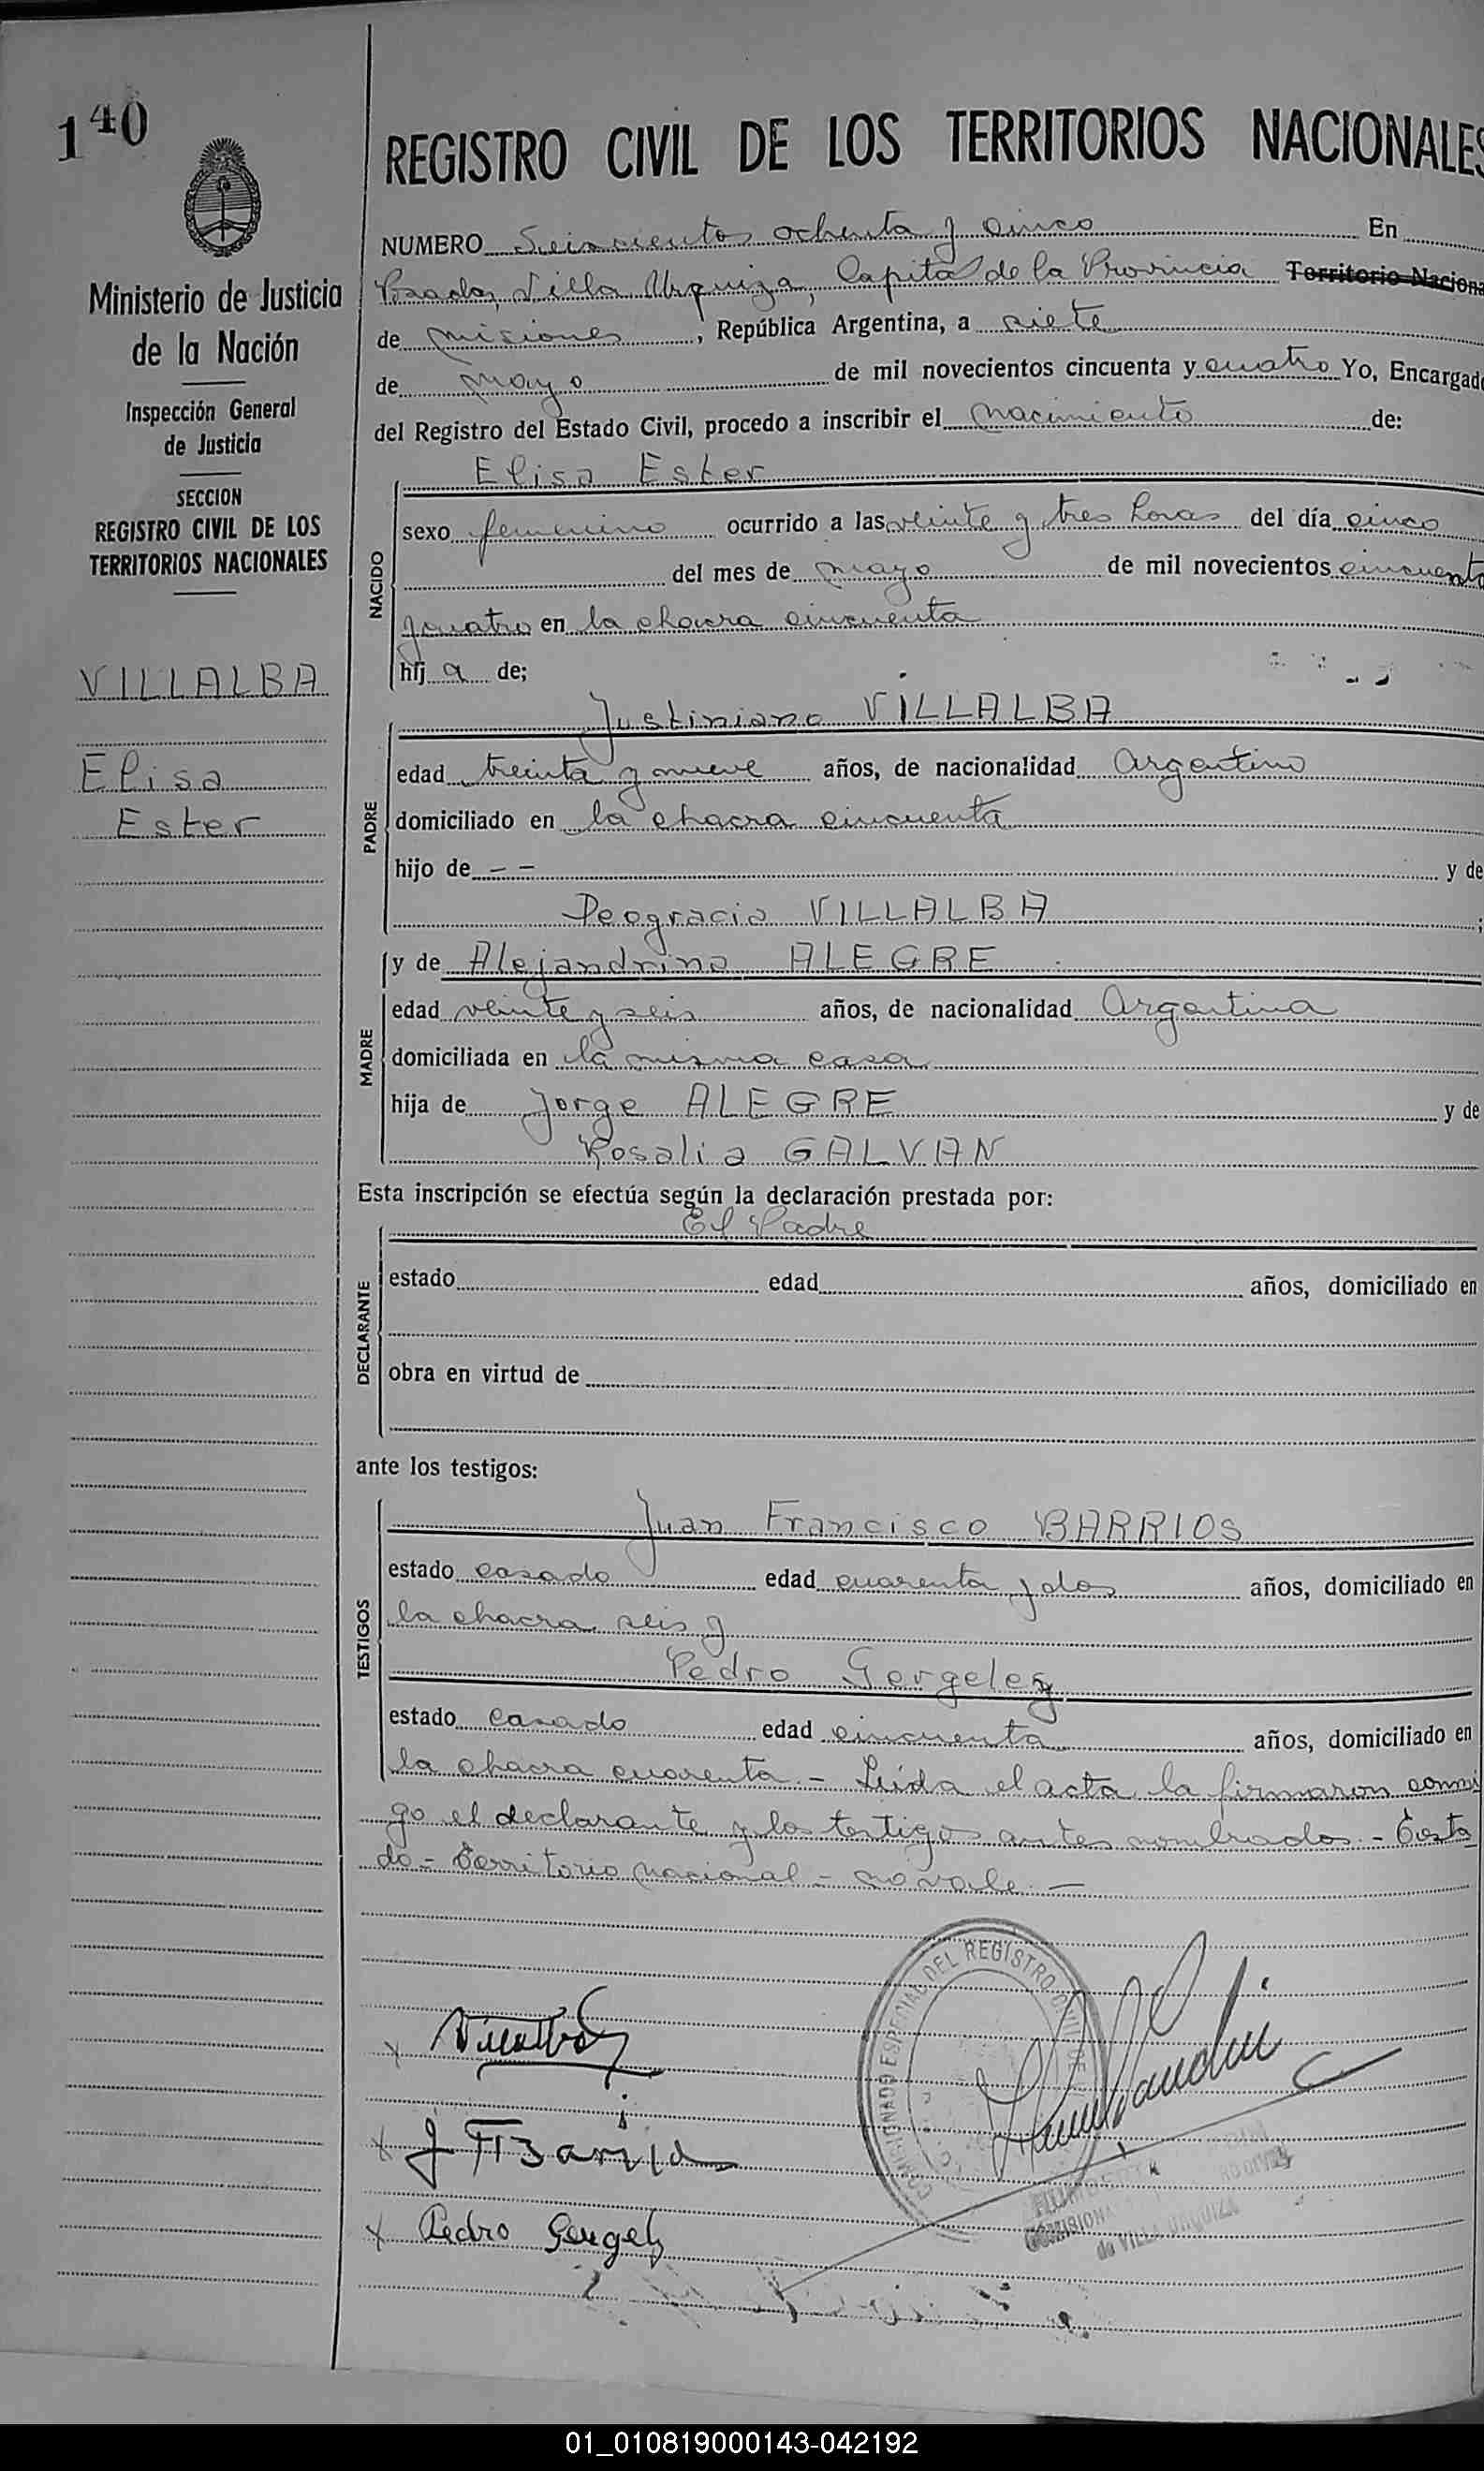 140
Ministerio de Justicia
de la Nación
Inspección General
de Justicia
SECCION
REGISTRO CIVIL DE LOS
TERRITORIOS NACIONALES
VILLALBA
Elisa
Ester
REGISTRO CIVIL DE LOS TERRITORIOS NACIONALES
NUMERO Seiscientos ochenta y cinco En
Posadas, Villa Urquiza, Capital de la Provincia Territorio Naciona
de Misiones, República Argentina, a siete
de mayo de mil novecientos cincuenta y cuatro Yo, Encargado
del Registro del Estado Civil, procedo a inscribir el nacimiento de:
NACIDO
Elisa Ester
sexo femenino ocurrido a las veinte y tres horas del día cinco
del mes de mayo de mil novecientos cincuenta
y cuatro en la chacra cincuenta
hij a de;
PADRE
Justiniano VILLALBA
edad treinta y nueve años, de nacionalidad Argentino
domiciliado en la chacra cincuenta
hijo de - - y de
Deogracia VILLALBA ;
y de Alejandrina ALEGRE
MADRE
edad veinte y seis años, de nacionalidad Argentina
domiciliada en la misma casa
hija de Jorge ALEGRE y de
Rosalia GALVAN
Esta inscripción se efectúa según la declaración prestada por:
DECLARANTE
El Padre
estado edad años, domiciliado en
obra en virtud de
ante los testigos:
TESTIGOS
Juan Francisco BARRIOS
estado casado edad cuarenta y dos años, domiciliado en
la chacra seis y
Pedro Gergeley
estado casado edad cincuenta años, domiciliado en
la chacra cuarenta.- Leída el acta la firmaron conmi
go el declarante y los testigos antes nombrados.- Testa
do - territorio nacional - no vale.-
x Villalba
x J F Barrios
x Pedro Gergely
COMISIONADO ESPECIAL DEL REGISTRO CIVIL DE
de VILLA URQUIZA
01_010819000143-042192